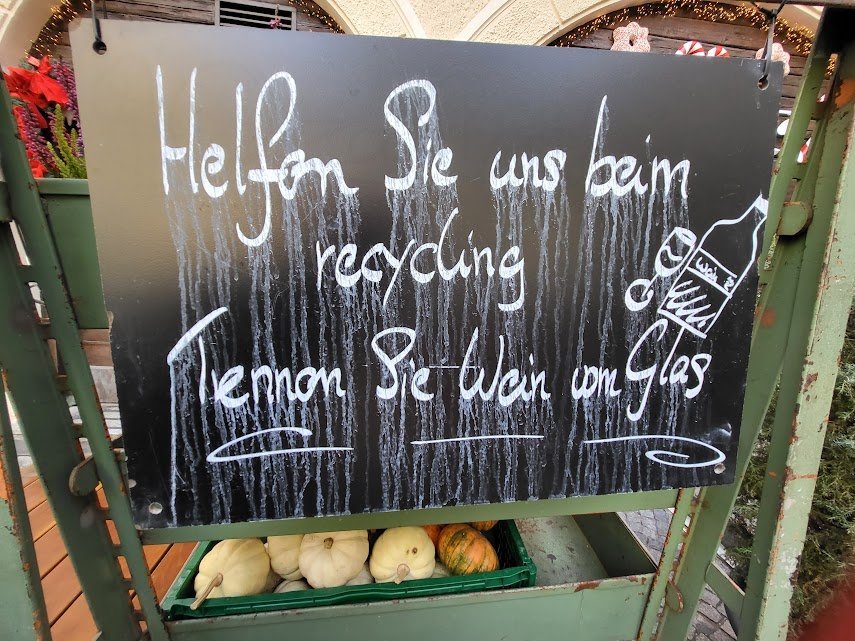 Helfen Sie uns beim
recycling
Wein
Trennen Sie Wein vom Glas